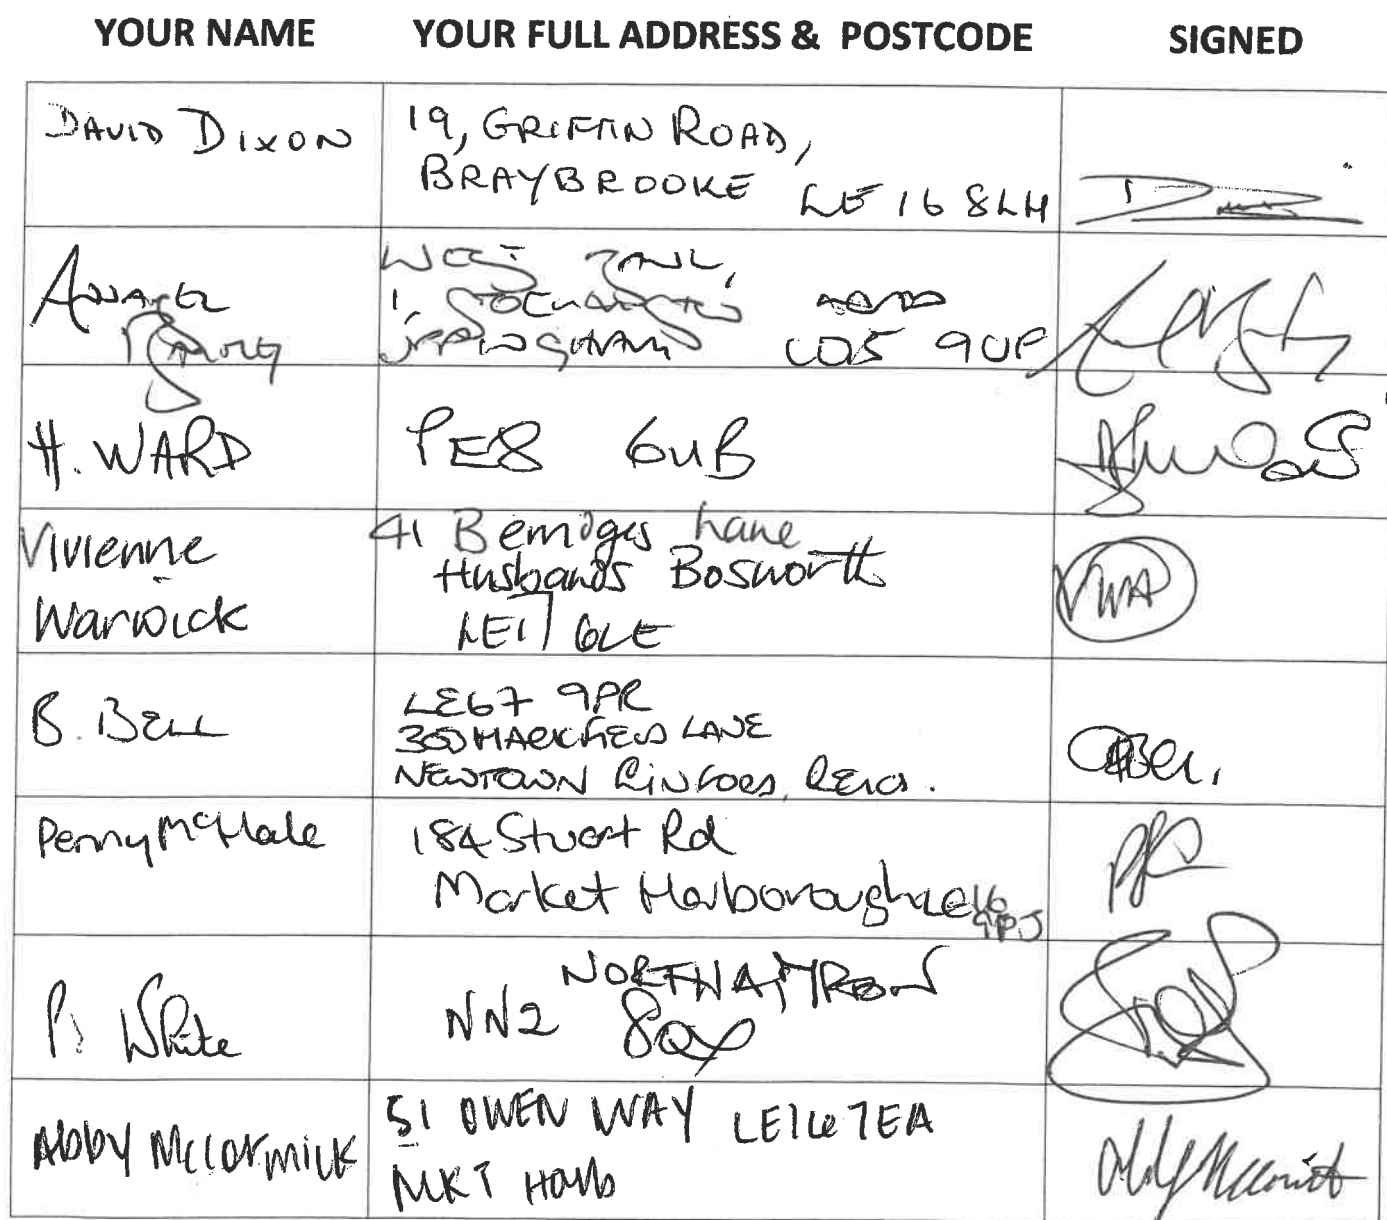 YOUR NAME YOUR FULL ADDRESS & POSTCODE SIGNED
DAVID DIXON
19, GRIFFIN ROAD,
BRAYBROOKE LE16 8LH
1,
UPPINGHAM
H. WARD
PE8 6UB
Vivienne
Warwick
41 Berridges Lane
Husbands Bosworth
LE17 6LE
B. BELL
LE67 9PR
MARKFIELD LANE
NEWTOWN LINFORD, LEICS.
Penny McHale
184 Stuart Rd
Market Harborough LE16
9PJ
P. White
NORTHAMPTON
NN2
Abby McCormick
51 OWEN WAY LE16 7EA
MKT Harb